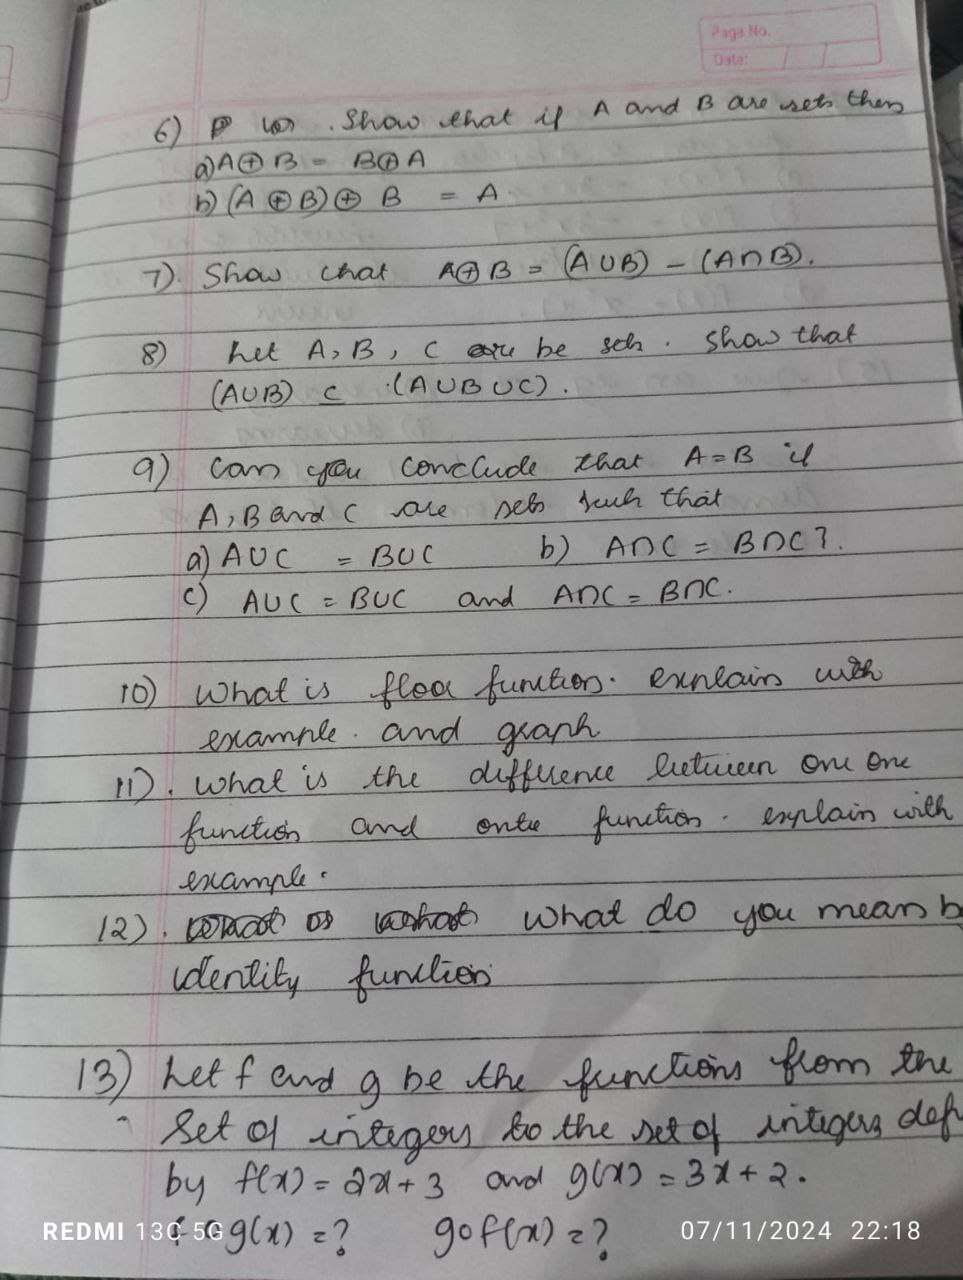 Page No.
Date:
6) Show that if A and B are sets then
a) A ⊕ B = B ⊕ A
b) (A ⊕ B) ⊕ B = A
7). Show that A ⊕ B = (A ∪ B) - (A ∩ B).
8) Let A, B, C be sets. Show that
(A ∪ B) ⊆ (A ∪ B ∪ C).
9) Can you conclude that A = B if
A, B and C are sets such that
a) A ∪ C = B ∪ C b) A ∩ C = B ∩ C?.
c) A ∪ C = B ∪ C and A ∩ C = B ∩ C.
10) What is floor function. explain with
example. and graph
11). What is the difference between one one
function and onto function. explain with
example.
12). What do you mean b
identity function
13) Let f and g be the functions from the
Set of integers to the set of integers def
by f(x) = 2x + 3 and g(x) = 3x + 2.
f o g(x) = ? g o f(x) = ?
REDMI 13C 5G 07/11/2024 22:18